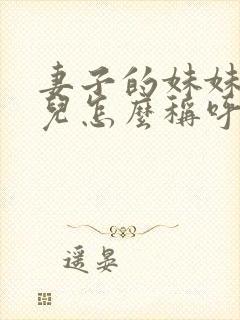 妻子的妹妹
兒怎麼稱呼
遥晏